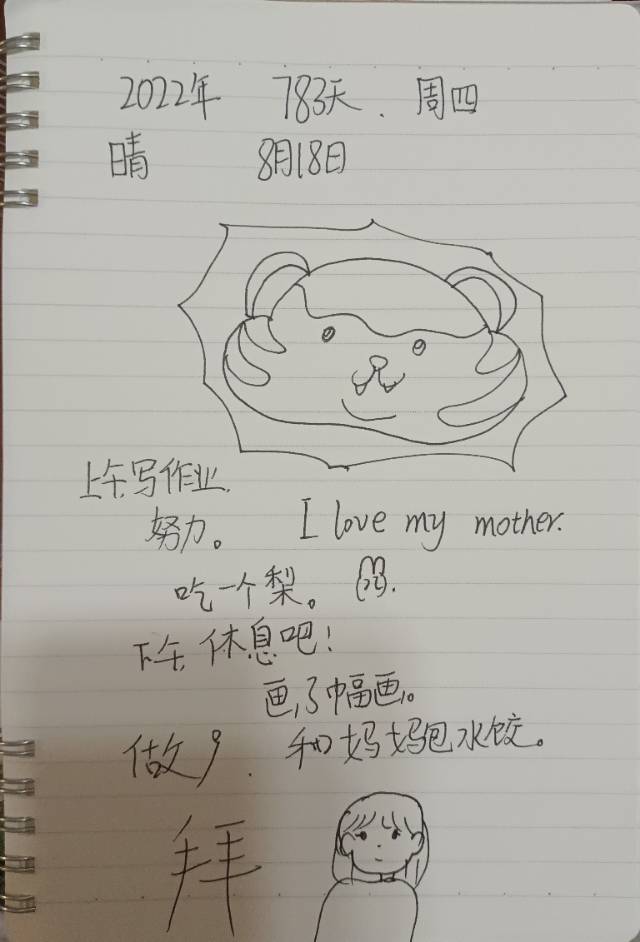 2022年 783天. 周四
晴 8月18日
上午写作业.
努力。 I love my mother.
吃一个梨。
下午休息吧！
画了幅画。
做 . 和妈妈包水饺。
拜